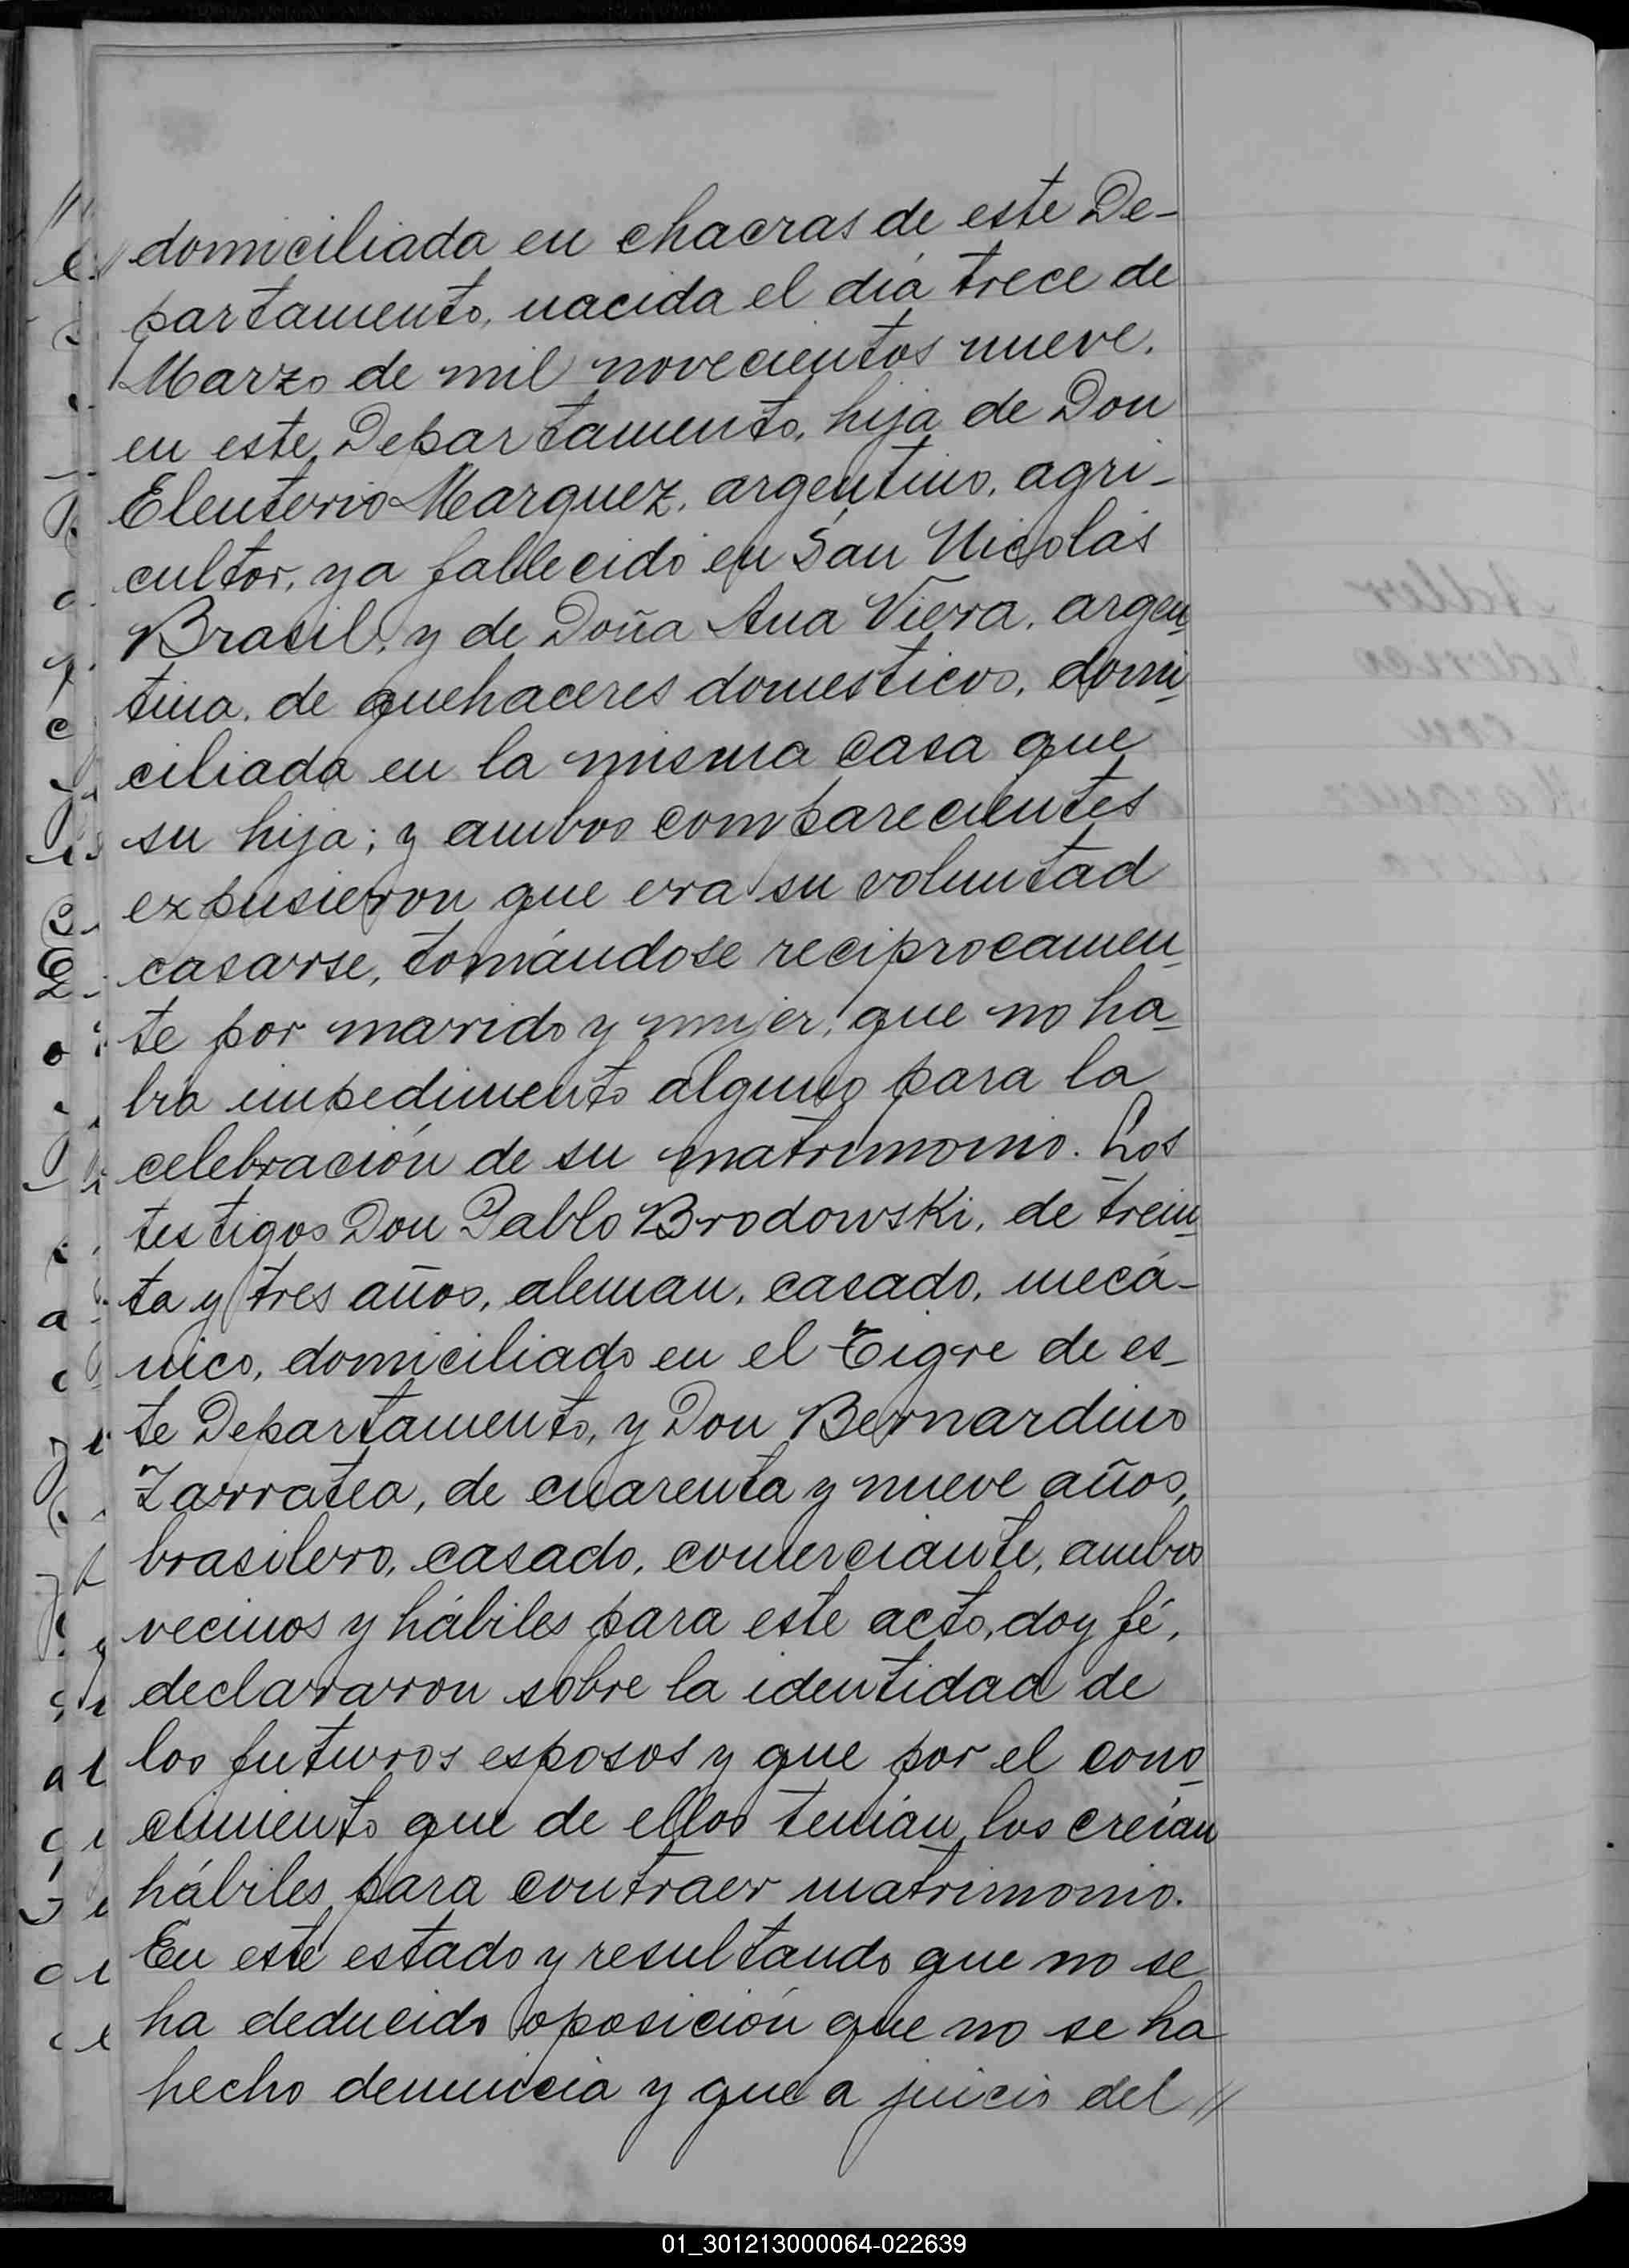 domiciliada en chacras de este De-
partamento, nacida el día trece de
Marzo de mil novecientos nueve,
en este Departamento, hija de Don
Eleuterio Marquez, argentino, agri-
cultor, ya fallecido en San Nicolás
Brasil, y de Doña Ana Viera, argen
tina, de quehaceres domesticos, domi
ciliada en la misma casa que
su hija; y ambos comparecientes
expusieron que era su voluntad
casarse, tomándose reciprocamen
te por marido y mujer, que no ha
bia impedimento alguno para la
celebración de su matrimonio. Los
testigos Don Pablo Brodowski, de trein
ta y tres años, aleman, casado, mecá-
nico, domiciliado en el Tigre de es-
te Departamento, y Don Bernardino
Zarratea, de cuarenta y nueve años,
brasilero, casado, comerciante, ambos
vecinos y hábiles para este acto, doy fé,
declararon sobre la identidad de
los futuros esposos y que por el cono
cimiento que de ellos tenian los creían
hábiles para contraer matrimonio.
En este estado y resultando que no se
ha deducido oposición que no se ha
hecho denuncia y que a juicio del //
01_301213000064-022639